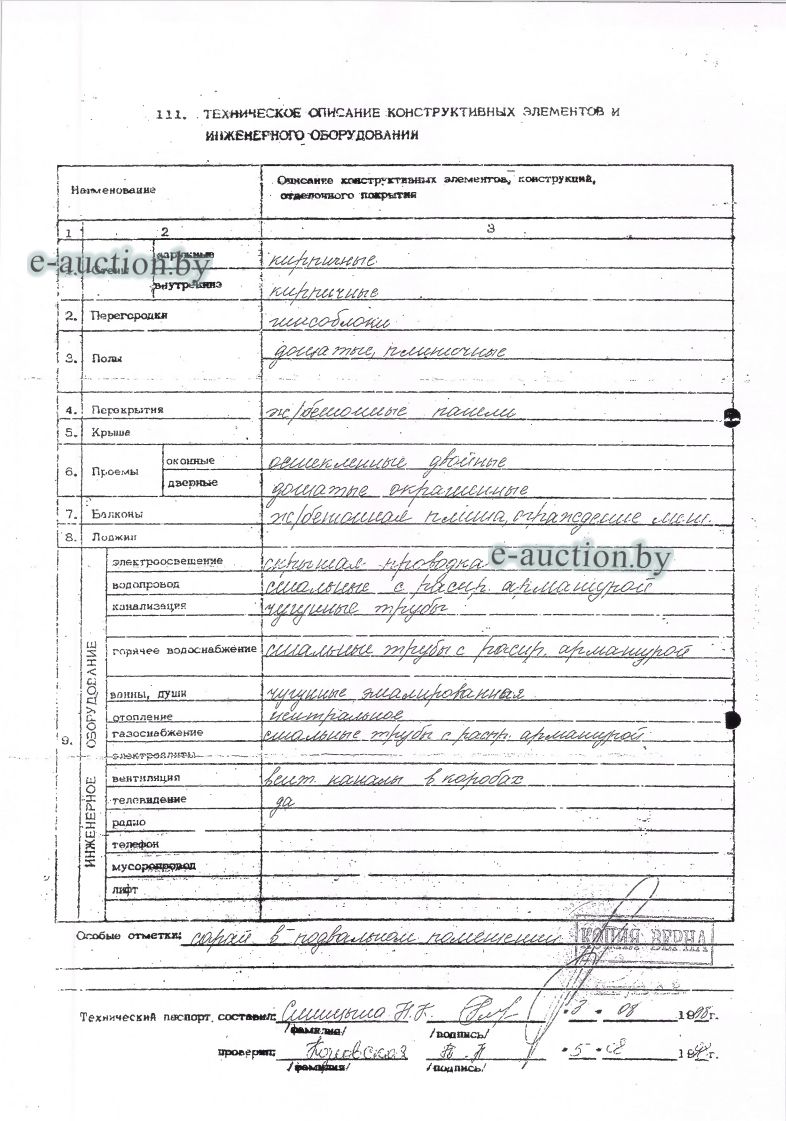 111. ТЕХНИЧЕСКОЕ ОПИСАНИЕ КОНСТРУКТИВНЫХ ЭЛЕМЕНТОВ И
ИНЖЕНЕРНОГО ОБОРУДОВАНИЯ
Наименование
Описание конструктивных элементов, конструкций,
отделочного покрытия
1 2 3
e-auction.by
1. Стены наружные кирпичные
внутренние кирпичные
2. Перегородки гипсоблоки
3. Полы дощатые, плиточные
4. Перекрытия ж/бетонные панели
5. Крыша
6. Проемы оконные остекленные двойные
дверные дощатые окрашенные
7. Балконы ж/бетонная плита, ограждение мет.
8. Лоджии
9. ИНЖЕНЕРНОЕ ОБОРУДОВАНИЕ
электроосвещение скрытая проводка
e-auction.by
водопровод стальные с распр. арматурой
канализация чугунные трубы
горячее водоснабжение стальные трубы с распр. арматурой
ванны, души чугунные эмалированная
отопление центральное
газоснабжение стальные трубы с распр. арматурой
электроплиты
вентиляция вент. каналы в коробах
телевидение да
радио
телефон
мусоропровод
лифт
Особые отметки: сарай в подвальном помещении
КОПИЯ ВЕРНА
Технический паспорт составил: Н.К. 08 19 г.
/фамилия/ /подпись/
проверил: 5 19 г.
/фамилия/ /подпись/